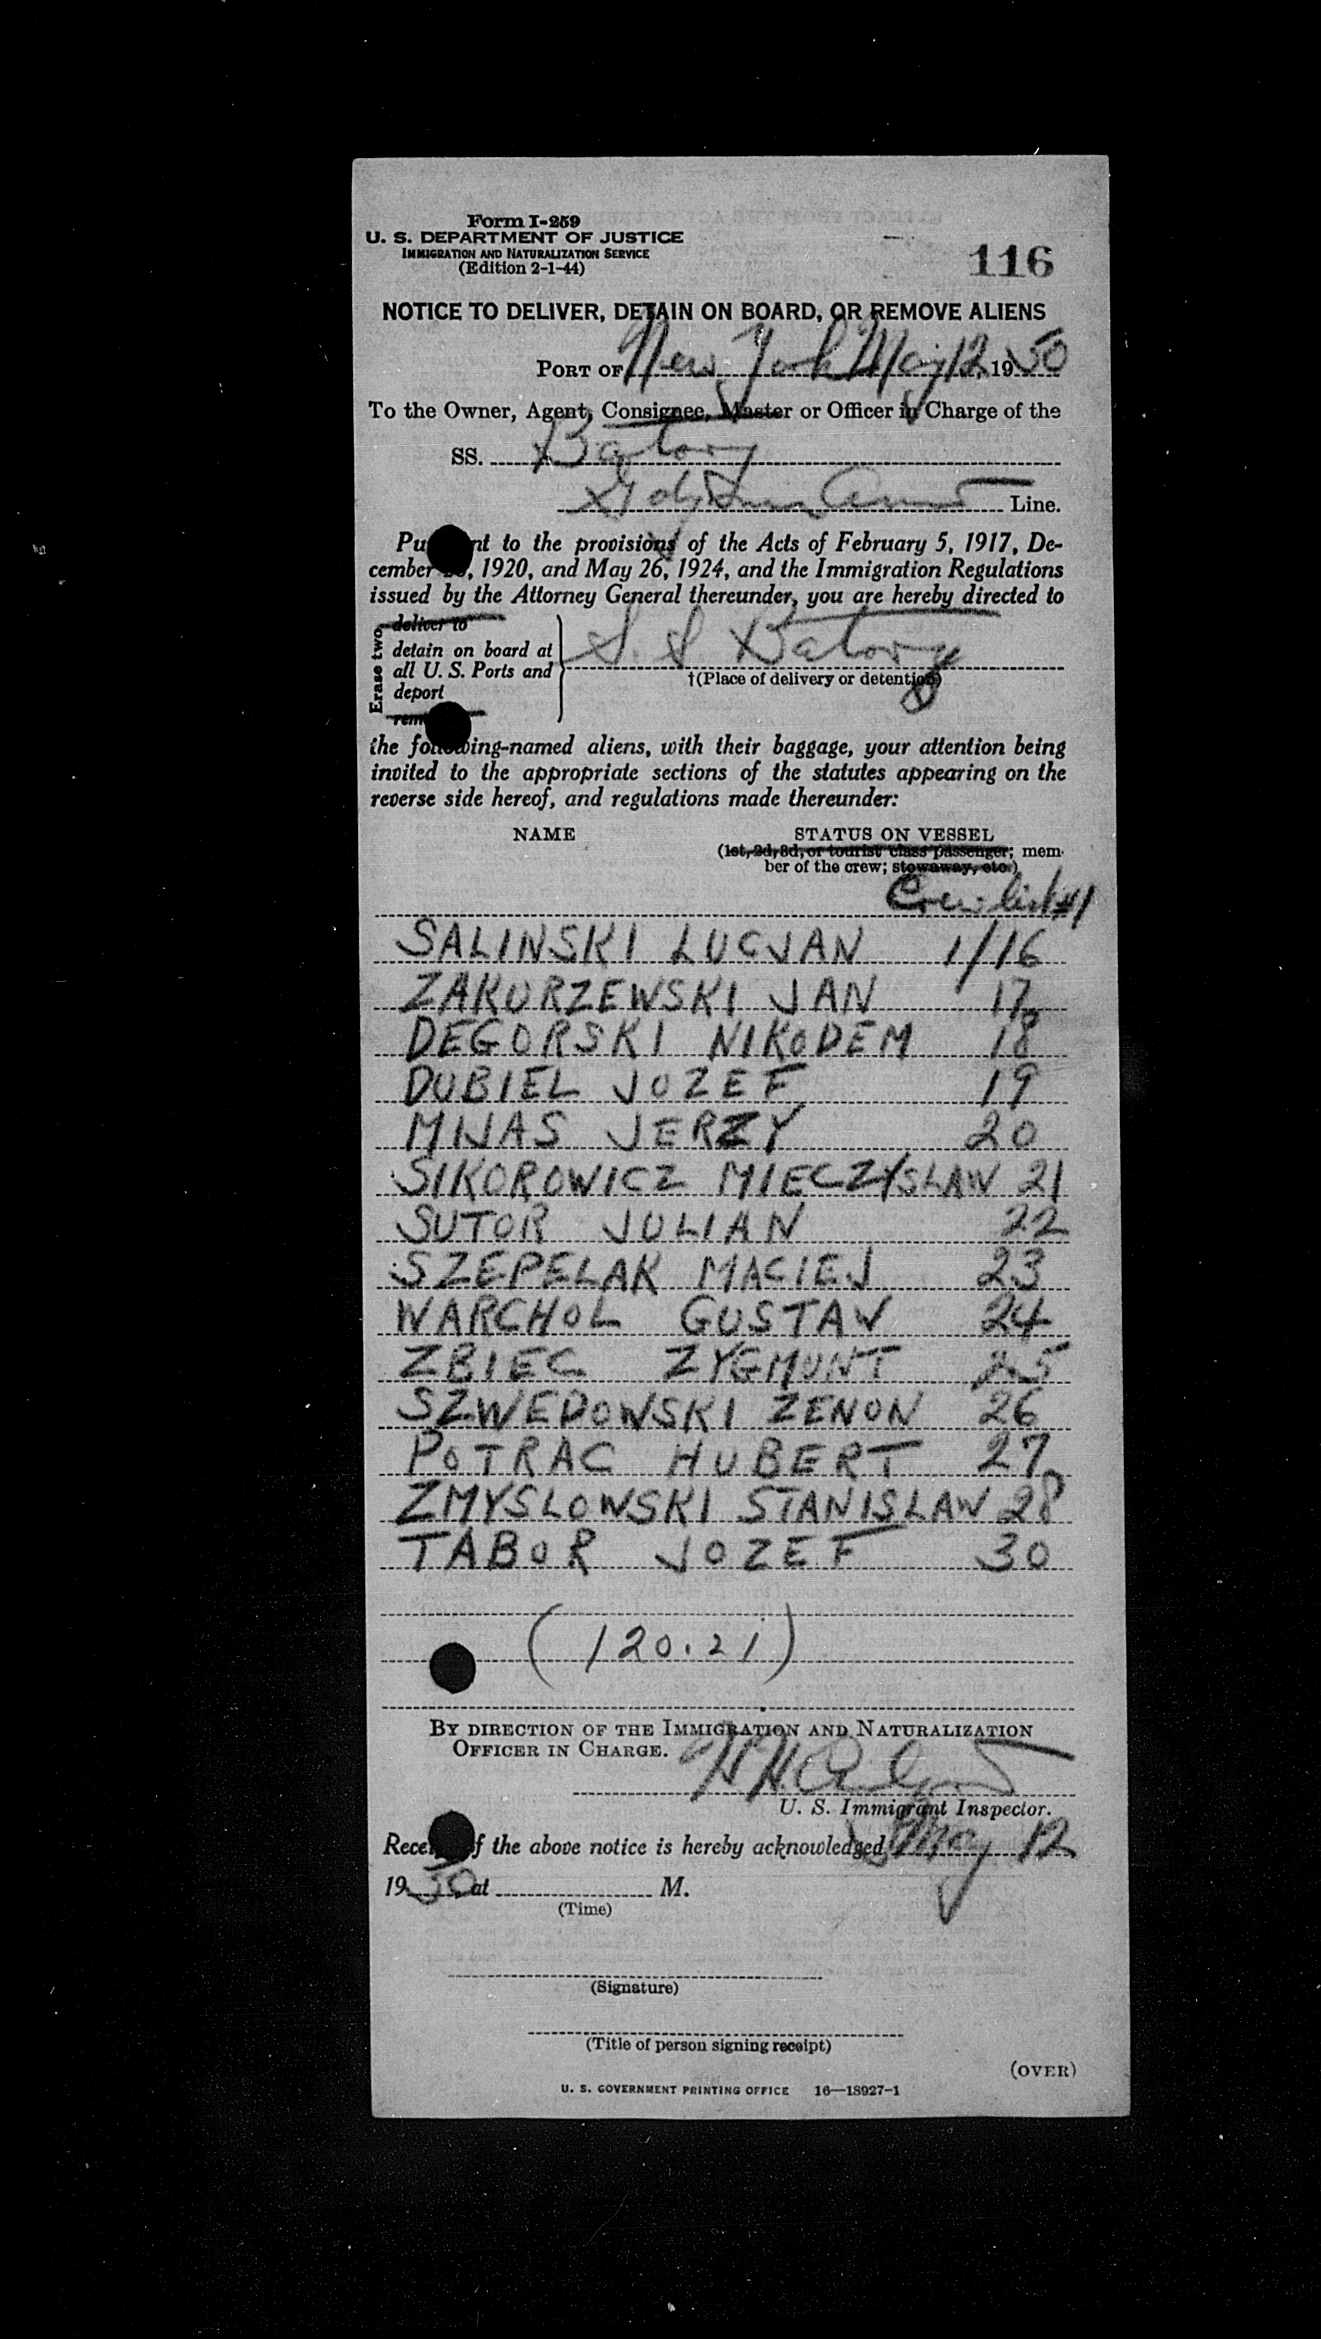 Form I-259
U. S. DEPARTMENT OF JUSTICE
IMMIGRATION AND NATURALIZATION SERVICE
(Edition 2-1-44)
116
NOTICE TO DELIVER, DETAIN ON BOARD, OR REMOVE ALIENS
PORT OF New York May 12, 1950
To the Owner, Agent, Consignee, Master or Officer in Charge of the
SS. Batory
Line.
Pu nt to the provisions of the Acts of February 5, 1917, De-
cember , 1920, and May 26, 1924, and the Immigration Regulations
issued by the Attorney General thereunder, you are hereby directed to
Erase two
deliver to
detain on board at
all U. S. Ports and
deport
rem
S. S Batory
†(Place of delivery or detention)
the following-named aliens, with their baggage, your attention being
invited to the appropriate sections of the statutes appearing on the
reverse side hereof, and regulations made thereunder:
NAME STATUS ON VESSEL
(1st, 2d, 3d, or tourist class passenger; mem-
ber of the crew; stowaway, etc.)
Crew list #1
SALINSKI LUCJAN 1/16
ZAKURZEWSKI JAN 17
DEGORSKI NIKODEM 18
DUBIEL JOZEF 19
MIJAS JERZY 20
SIKOROWICZ MIECZYSLAW 21
SUTOR JULIAN 22
SZEPELAK MACIEJ 23
WARCHOL GUSTAW 24
ZBIEC ZYGMUNT 25
SZWEDOWSKI ZENON 26
POTRAC HUBERT 27
ZMYSLOWSKI STANISLAW 28
TABOR JOZEF 30
(120.21)
BY DIRECTION OF THE IMMIGRATION AND NATURALIZATION
OFFICER IN CHARGE.
U. S. Immigrant Inspector.
Rece f the above notice is hereby acknowledged May 12
1950, at M.
(Time)
(Signature)
(Title of person signing receipt)
(OVER)
U. S. GOVERNMENT PRINTING OFFICE 16—18927-1